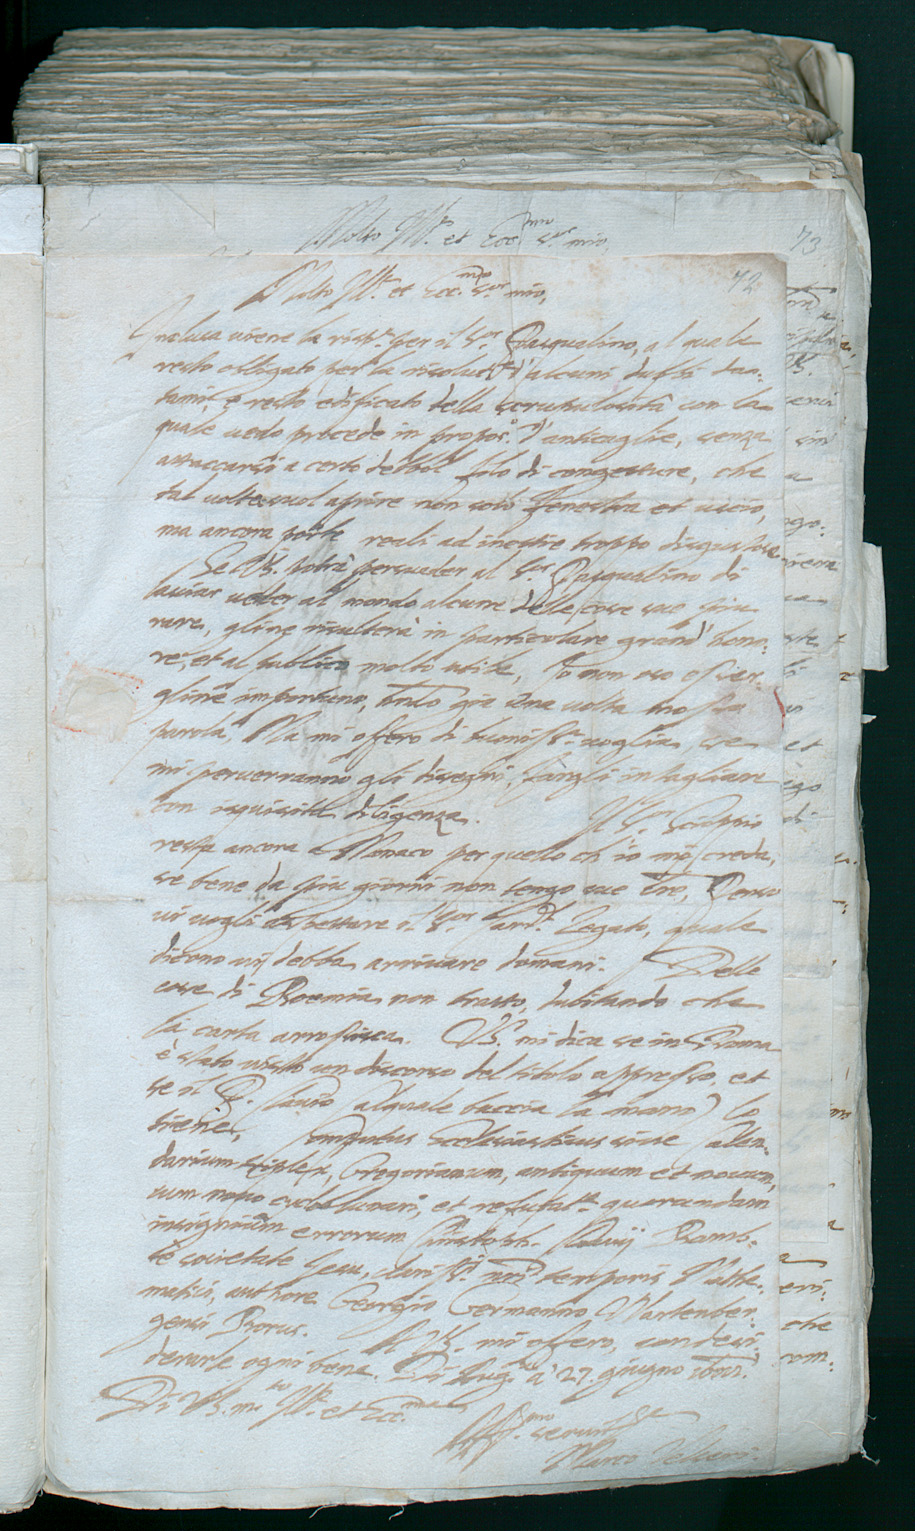 Molto Ill.re et Ecc.mo S.or mio,
73
Molto Ill.re et Ecc.mo S.or mio,
72
Inclusa viene la risp.ta per il S.or Pasqualino, al quale
resto obligato per la risolut.ne d'alcuni dubbi
et resto edificato della scrupulosità con la
quale vedo procede in propos.o d'anticaglie, senza
attaccarsi a certo debbol filo di congetture, che
tal volta suol aprire non solo fenestra et uscio,
ma ancora porte reali ad inestie troppo disgustose.
Se VS. potrà persuader al S.or Pasqualino di
lasciar veder al mondo alcune delle cose sue più
rare, gline risulterà in particulare grand' hono¬
re, et al publico molto utile, Io non oso esser¬
gline importuno, una volta
parola, Ma mi offero di buoniss.a voglia, se
mi perverranno gli disegni, fargli intagliare
con isquisita diligenza. Il S.or Scioppio
resta ancora a Monaco per quello ch'io mi creda,
se bene da più giorni non tengo sue lre, Penso
vi vogli aspettare il S.or Card.l Legato, quale
dicono vi debba arrivare domani. Delle
cose di Boemia non tratto, dubitando che
la carta arrossisca. VS. mi dica se in Roma
è stato visto un discorso del titolo appresso, et
se il P. Clavio (al quale baccia la mano) lo
tiene, Computus Ecclesiasticus sive Calen¬
darium triplex, Gregorianum, antiquum et novum,
cum novo cyclo lunari, et refutat.e quorundam
insignium errorum Christoph. Clavij Bamb.
è societate Jesu, clariss.i nri temporis Mathe¬
matici, authore Georgio Germanno Wartenber¬
gensi Borus. A VS. mi offero, con desi¬
derarle ogni bene. Di Aug.ta a' 27. giugno
Di VS. m.to Ill.re et Ecc.ma
Aff.mo servit.re
Marco Velseri.